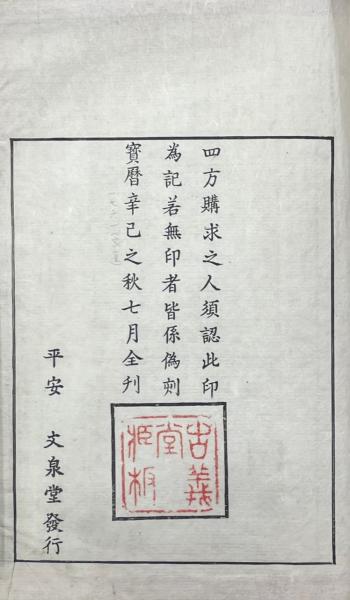 四方購求之人須認此印
為記若無印者皆係偽刻
寶曆辛巳之秋七月全刊
古義
堂
藏板
平安 文泉堂發行